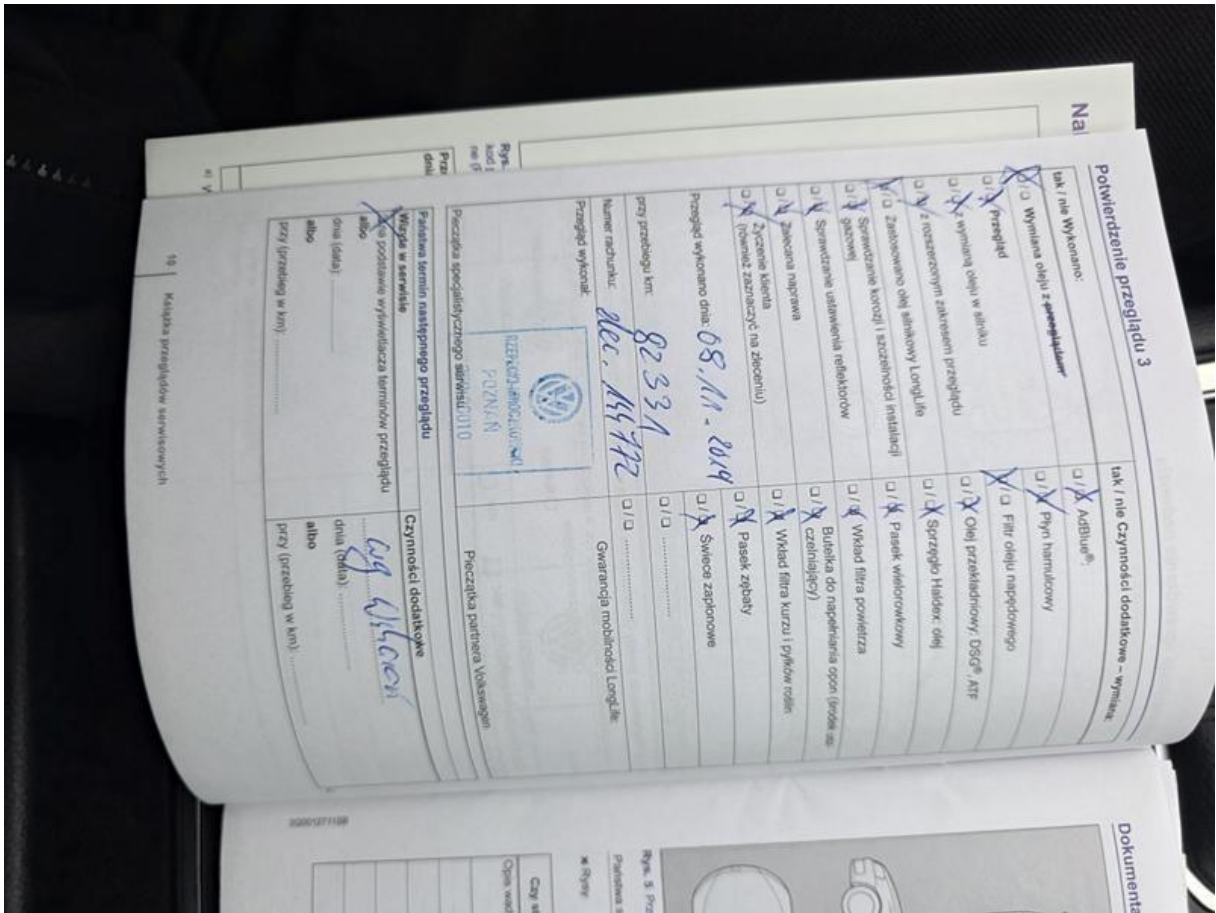 Potwierdzenie przeglądu 3
tak / nie Wykonano:
Wymiana oleju z przeglądem
Przegląd
z wymianą oleju w silniku
z rozszerzonym zakresem przeglądu
Zastosowano olej silnikowy LongLife
Sprawdzanie korozji i szczelności instalacji
gazowej
Sprawdzanie ustawienia reflektorów
Zalecana naprawa
Życzenie klienta
(również zaznaczyć na zleceniu)
Przegląd wykonano dnia: 08.11-2019
przy przebiegu km: 82331
Numer rachunku: zlec. 144772
Przegląd wykonał:
POZNAŃ
Pieczątka specjalistycznego serwisu
tak / nie Czynności dodatkowe – wymiana:
AdBlue®:
Płyn hamulcowy
Filtr oleju napędowego
Olej przekładniowy: DSG®, ATF
Sprzęgło Haldex: olej
Pasek wielorowkowy
Wkład filtra powietrza
Butelka do napełniania opon (środek usz-
czelniający)
Wkład filtra kurzu i pyłków roślin
Pasek zębaty
Świece zapłonowe
Gwarancja mobilności LongLife:
Pieczątka partnera Volkswagen
Państwa termin następnego przeglądu
Wizyta w serwisie
Na podstawie wyświetlacza terminów przeglądu
albo
dnia (data):
albo
przy (przebieg w km):
Czynności dodatkowe
wg wskazań
dnia (data):
albo
przy (przebieg w km):
10 Książka przeglądów serwisowych
Na
Rys.
kod
Prze
dnia
a)
Dokumenta
Rys. 5
Państwa
Rysy:
Czy
Opis wad